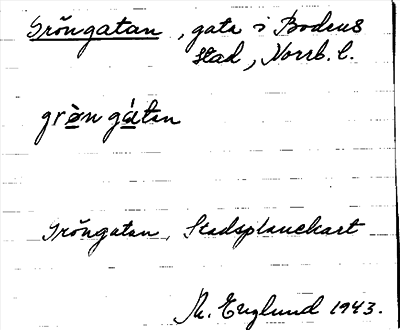 Gröngatan, gata i Bodens
stad, Norrb. l.
grö̀n gátan
Gröngatan, Stadsplanekart
M. Englund 1943.